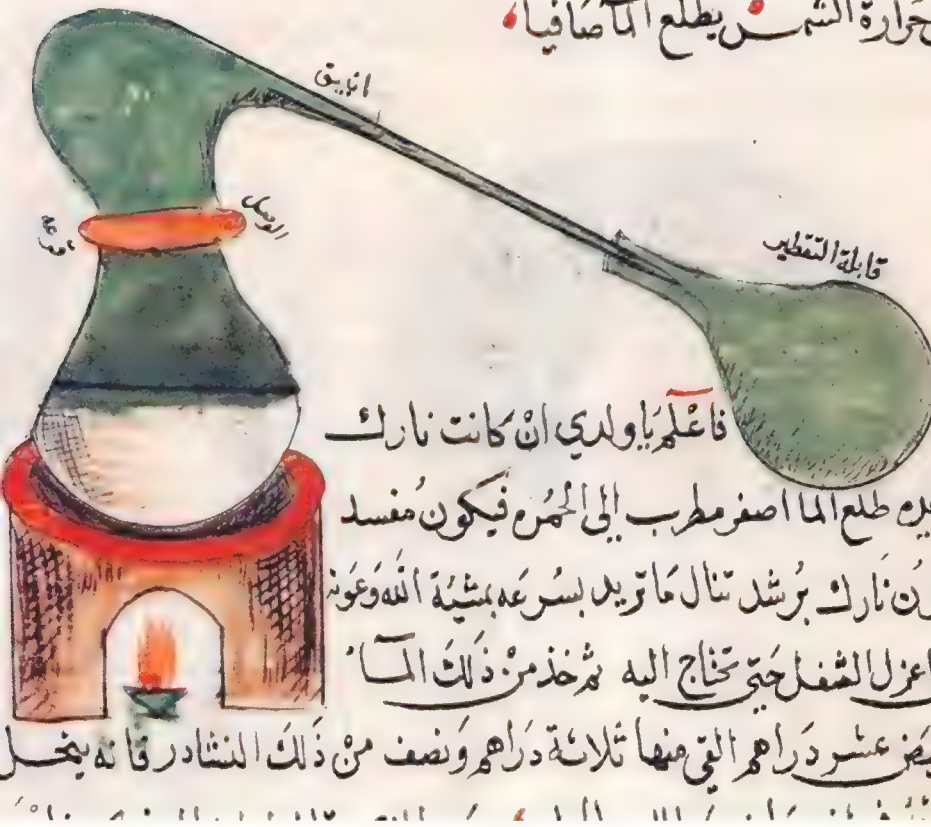 حرارة الشمس يطلع المآ صافيا
انبيق
قابلة التقطير
فاعْلم يَا ولدي انْ كانت نارك
طلع الما اصفر مطرب إلى الحُمره فيكون مُفسد
نَارك برُشد تنال مَا تريد بسُرعَه بمشيّة الله وَعَونه
اعزل الثفل حَتى تحتاج اليه ثم خذ منْ ذَلكَ المآء
عشر دَراهم القي منها ثلاثة دَراهم وَنصف منْ ذَلكَ النشادر فانه ينحل